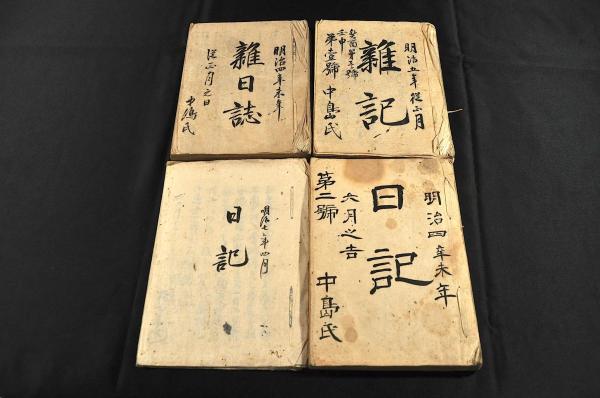 明治五年 從正月
雜記
壬申
第壹號 中島氏
明治四年未年
雜日誌
從正月之日
中島氏
明治四年未年
日記
六月之吉
中島氏
第二號
明治七年四月
日記